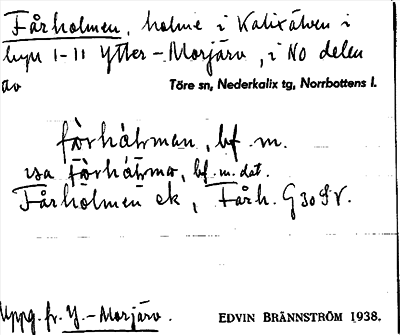 Fårholmen, holme i Kalixälven i
byn 1-11 Ytter-Morjärv, i NO delen
av Töre sn, Nederkalix tg, Norrbottens l.
fòrhàlman, bf. m.
isa fòrhàlma, bf. m. dat.
Fårholmen ek, Fårh. G 30 SV.
Uppg. fr. Y.-Morjärv. EDVIN BRÄNNSTRÖM 1938.